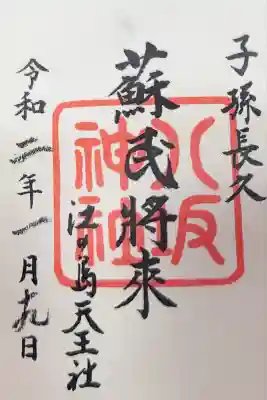 子孫長久
蘇民將來
八坂
神社
江の島天王社
令和二年一月十九日